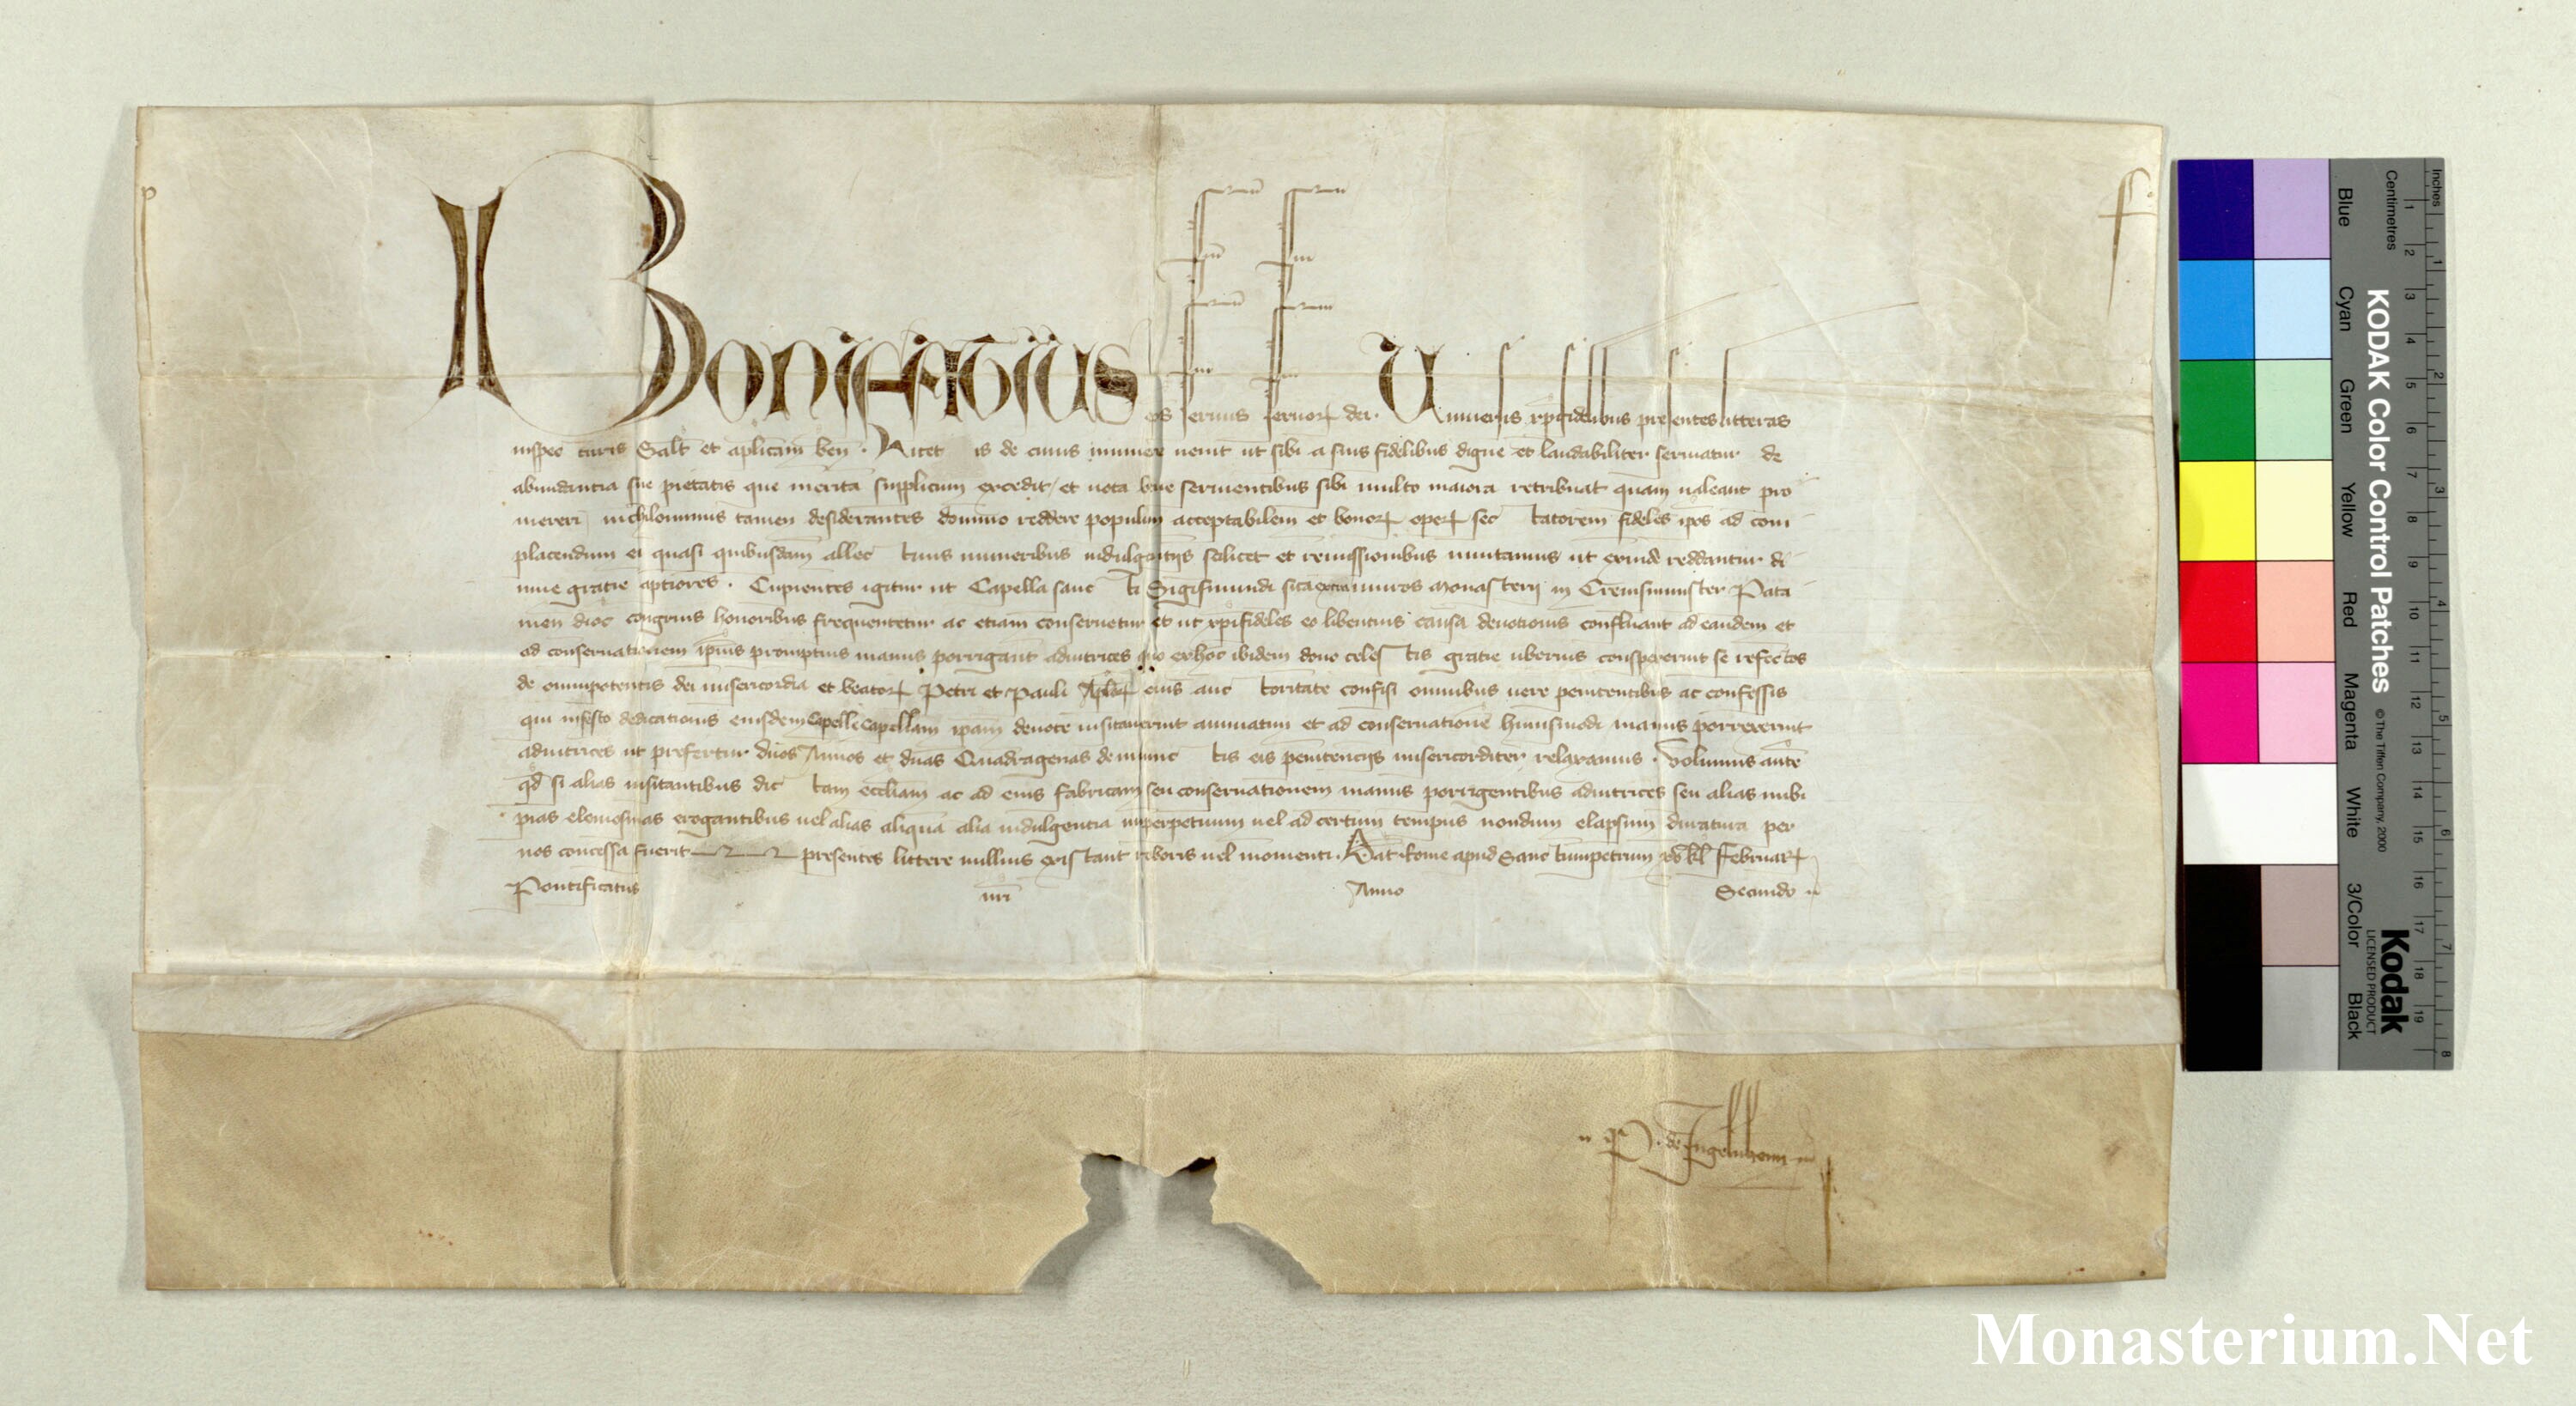 Bonifatius eps seruus seruor dei. Uniuersis xpifidelibus presentes litteras
inspec turis Salt et aplicam ben. Licet is de cuius munere uenit ut sibi a suis fidelibus digne et laudabiliter seruiatur de
abundantia sue pietatis que merita supplicum excedit et uota bene seruientibus sibi multo maiora retribuat quam ualeant pro
mereri nichilominus tamen desiderantes domino reddere populum acceptabilem et bonor oper sec tatorem fideles ipos ad com
placendum ei quasi quibusdam allec tiuis muneribus indulgentijs scilicet et remissionibus inuitamus ut exinde reddantur di
uine gratie aptiores. Cupientes igitur ut Capella sanc ti Sigismundi sita extra muros Monasterij in Cremsmunster Pata
uien dioc congruis honoribus frequentetur ac etiam conseruetur et ut xpifideles eo libentius causa deuotionis confluant ad eandem et
ad conseruationem ipius promptius manus porrigant adiutrices quo ex hoc ibidem dono celes tis gratie uberius conspexerint se refectos
de omnipotentis dei misericordia et beator Petri et Pauli Aplor eius auc toritate confisi omnibus uere penitentibus ac confessis
qui in festo dedicationis eiusdem Capelle Capellam ipam deuote uisitauerint annuatim et ad conseruatione huiusmodi manus porrexerint
adiutrices ut prefertur duos Annos et duas Quadragenas de iniunc tis eis penitencijs misericorditer relaxamus. Volumus aute
qd si alias uisitantibus dic tam eccliam ac ad eius fabricam seu conseruationem manus porrigentibus adiutrices seu alias inibi
pias elemosinas erogantibus uel alias aliqua alia indulgentia imperpetuum uel ad certum tempus nondum elapsum duratura per
nos concessa fuerit presentes littere nullius exis tant roboris uel momenti. Dat Rome apud Sanc tumpetrum kl Februar
Pontificatus nri Anno Secundo
P. de Ingelnheim
Inches
Centimetres
Blue Cyan Green Yellow Red Magenta White 3/Color Black
KODAK Color Control Patches © The Tiffen Company, 2000
Kodak
LICENSED PRODUCT
Monasterium.Net